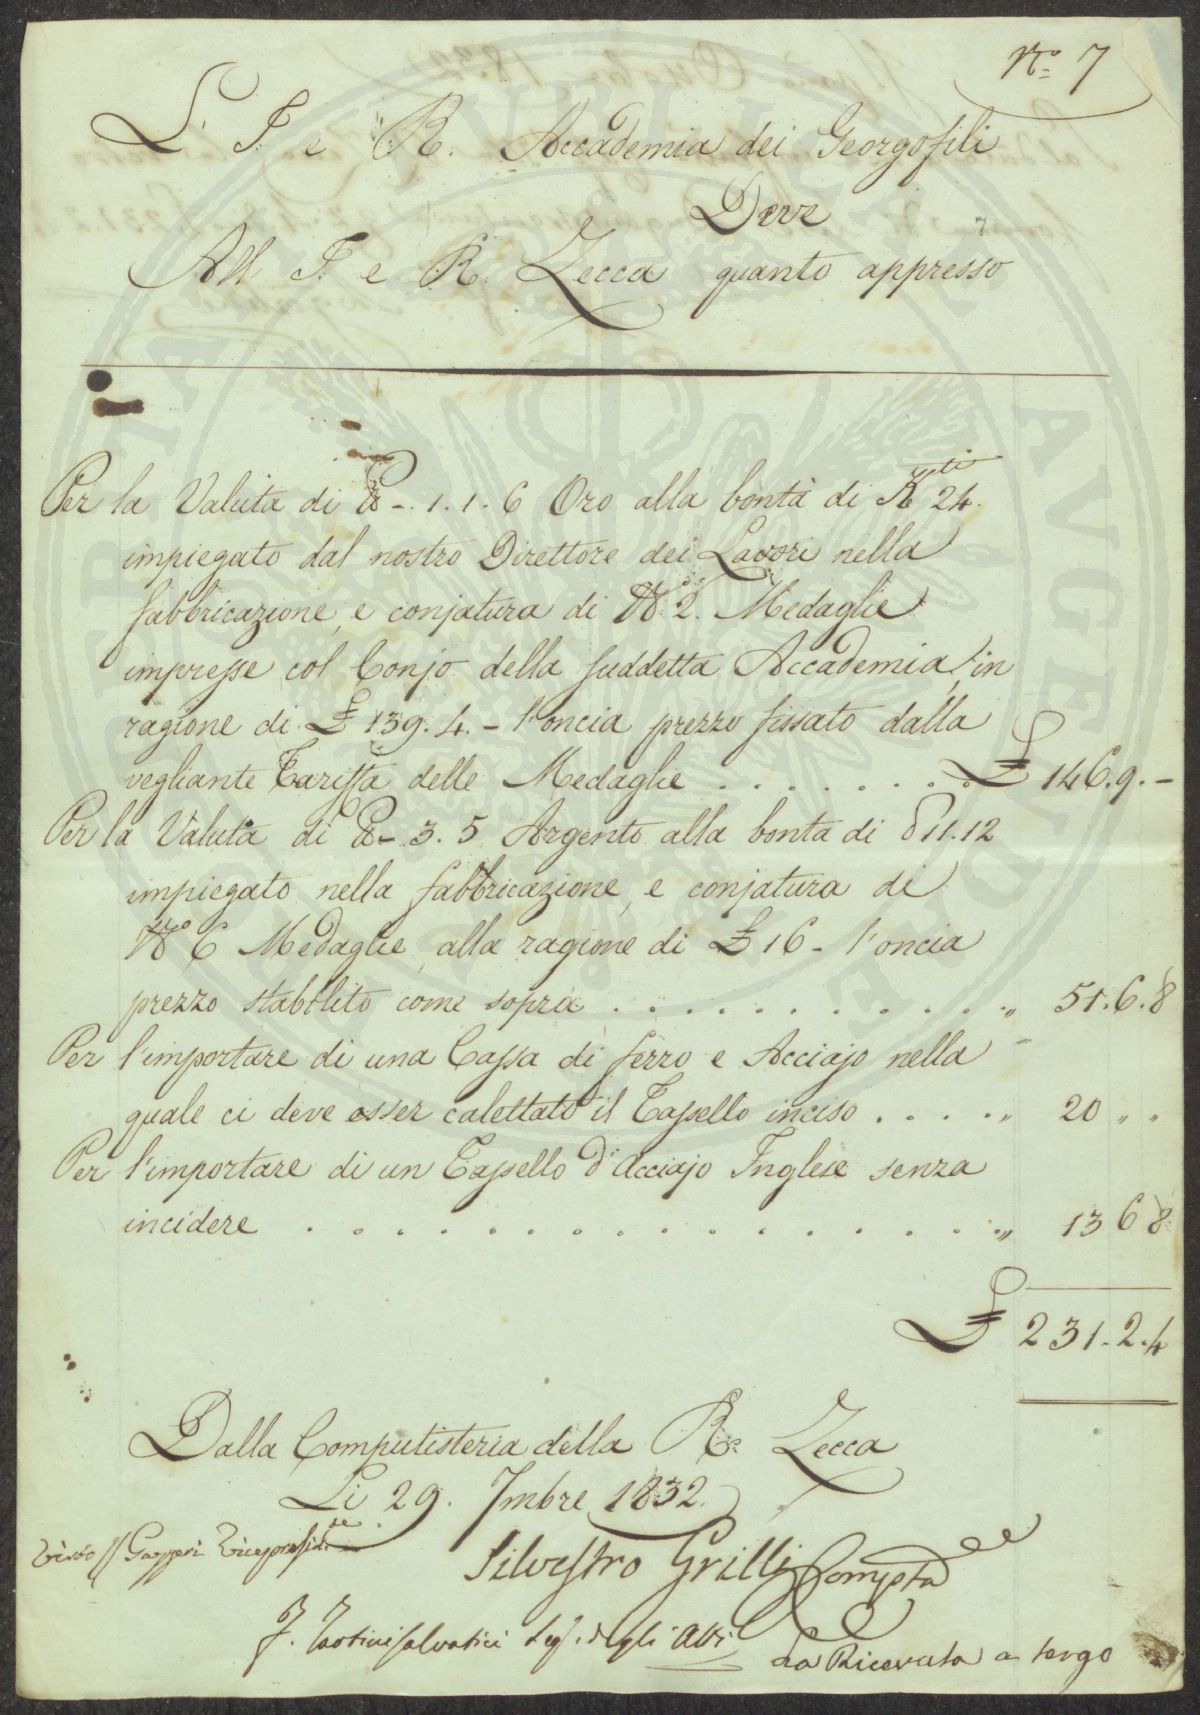 N.º 7
L' I. e R. Accademia dei Georgofili
Deve
All I. e R. Zecca quanto appresso
Per la Valuta di ℔ -. 1. 1. 6 Oro alla bontà di K.ti 24.
impiegato dal nostro Direttore dei Lavori nella
fabbricazione, e conjatura di N.º 2. Medaglie
impresse col Conjo della suddetta Accademia, in
ragione di £ 139. 4. - l'oncia prezzo fissato dalla
vegliante Tariffa delle Medaglie . . . . . . . . £ 146. 9. -
Per la Valuta di ℔ - 3. 5 Argento alla bontà di 11. 12
impiegato nella fabbricazione, e conjatura di
N.º 6 Medaglie, alla ragione di £ 16 - l'oncia
prezzo stabilito come sopra . . . . . . . . . . . „ 51. 6. 8
Per l'importare di una Cassa di ferro e Acciajo nella
quale ci deve esser calettato il Tassello inciso . . . . . „ 20 „ „
Per l'importare di un Tassello d'Acciajo Inglese senza
incidere . . . . . . . . . . . . . . . . . „ 13 6 8
£ 231. 2. 4
Dalla Computisteria della R.ª Zecca
Li 29. 7mbre 1832.
Visto Gazzeri Vicepresid.te
Silvestro Grilli Comp.sta
F. Tartini Salvatici Seg. degli Atti
La Ricevuta a tergo